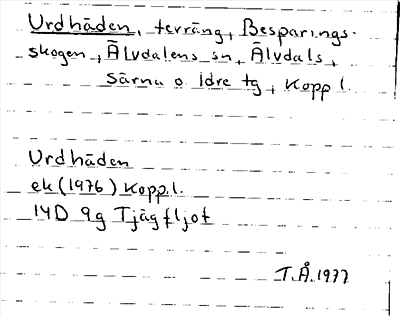 Urdhäden, terräng, Besparings-
skogen, Älvdalens sn, Älvdals,
Särna o Idre tg, Kopp l.
Urdhäden
ek (1976) Kopp.l.
14D 9g Tjägfljot
T.Å.1977